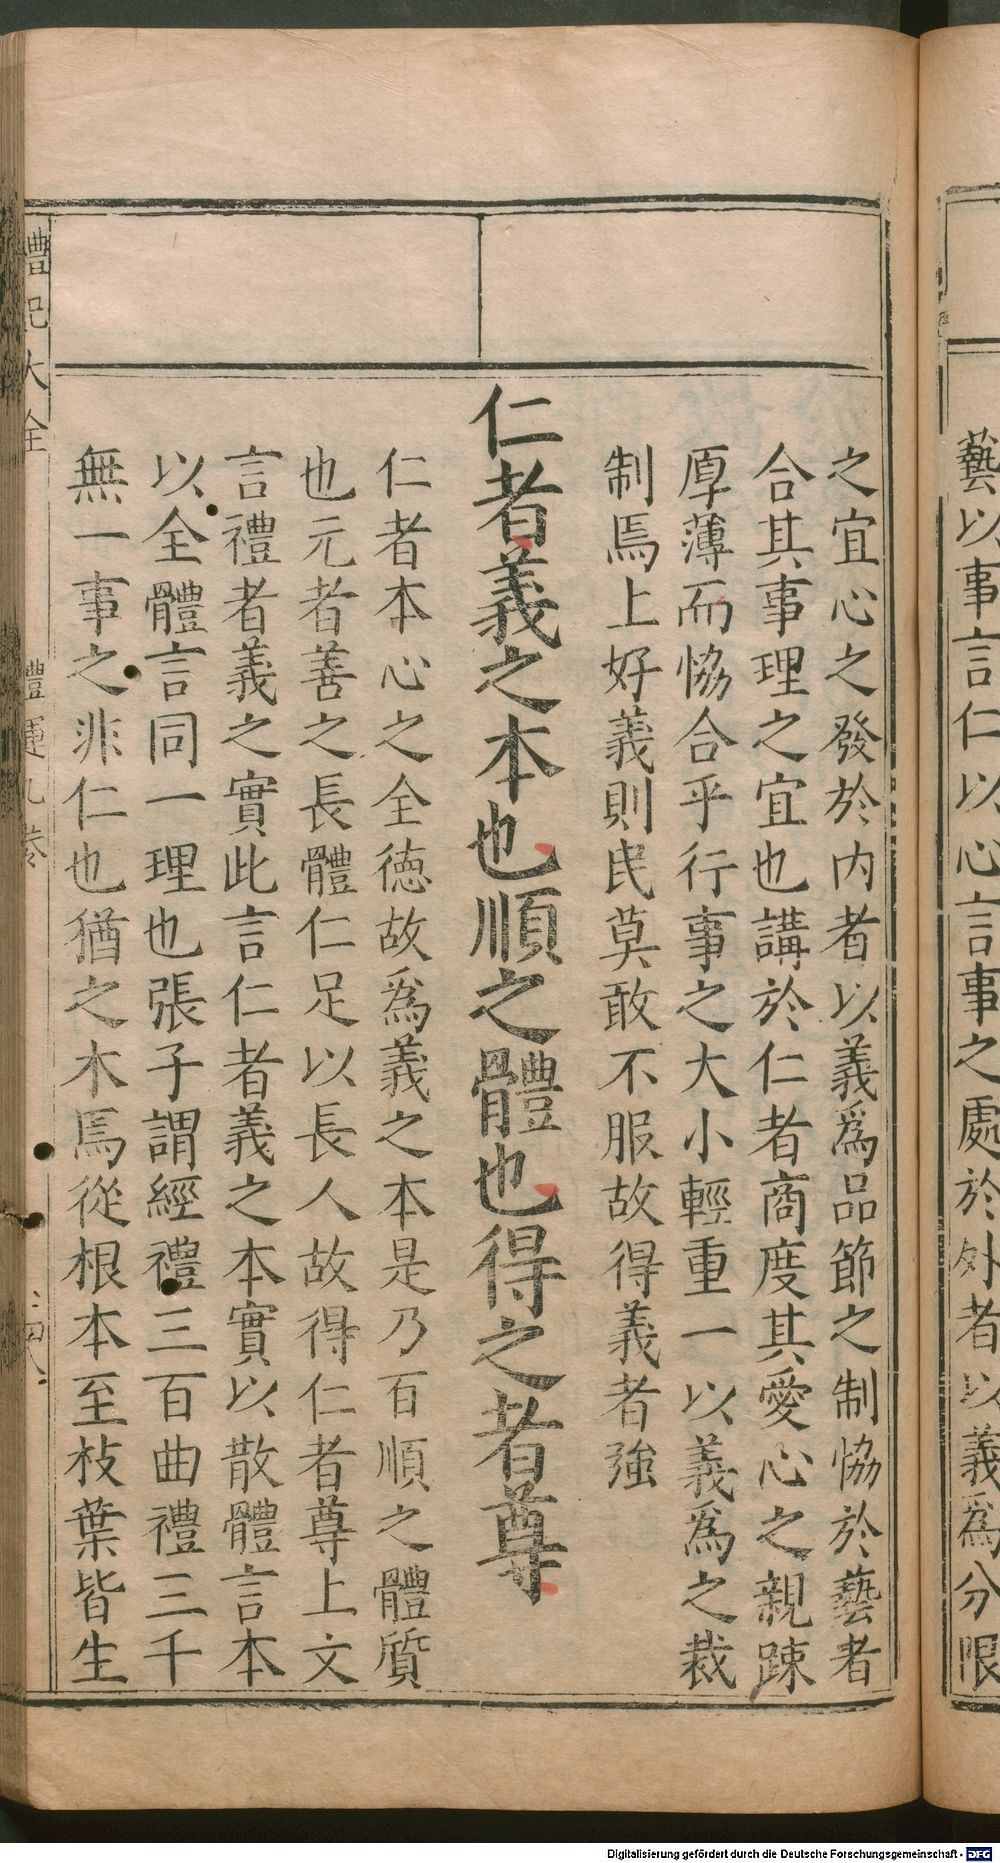 藝以事言仁以心言事之處於外者以義爲分限
之宜心之發於內者以義爲品節之制恊於藝者
合其事理之宜也講於仁者商度其愛心之親踈
厚薄而恊合乎行事之大小輕重一以義爲之裁
制焉上好義則民莫敢不服故得義者強
仁者義之本也順之體也得之者尊
仁者本心之全德故爲義之本是乃百順之體質
也元者善之長體仁足以長人故得仁者尊上文
言禮者義之實此言仁者義之本實以散體言本
以全體言同一理也張子謂經禮三百曲禮三千
無一事之非仁也猶之木焉從根本至枝葉皆生
禮記大全
禮運九卷
Digitalisierung gefördert durch die Deutsche Forschungsgemeinschaft - DFG